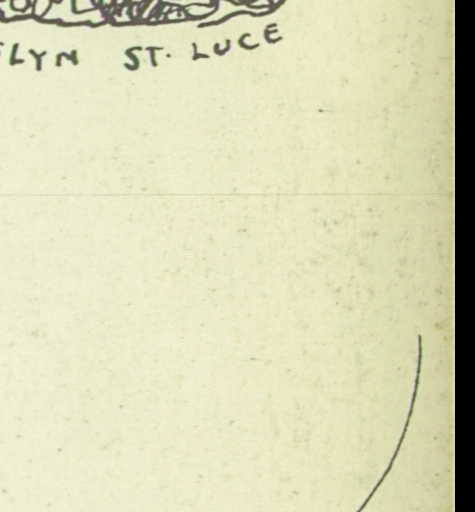 LYN ST. LUCE